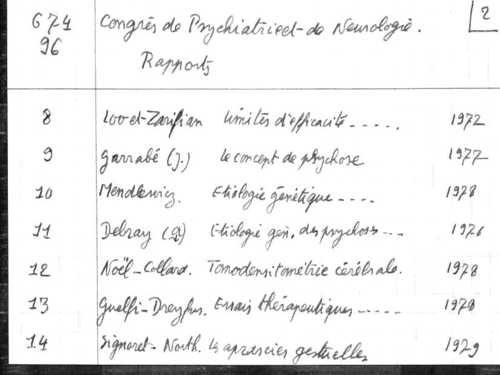 674 Congrès de Psychiatrie et de Neurologie. 2
96 Rapports
8 Loo et Zarifian limités d'efficacité ..... 1972
9 Garrabé (J.) le concept de psychose 1977
10 Mendlewicz. Etiologie génétique .... 1978
11 Etiologie gén. des psychoses ... 1976
12 Noël - Collard. Tomodensitométrie cérébrale. 1978
13 Guelfi - Dreyfus. Essais thérapeutiques ..... 1978
14 Signoret - North. les apraxies gestuelles 1979